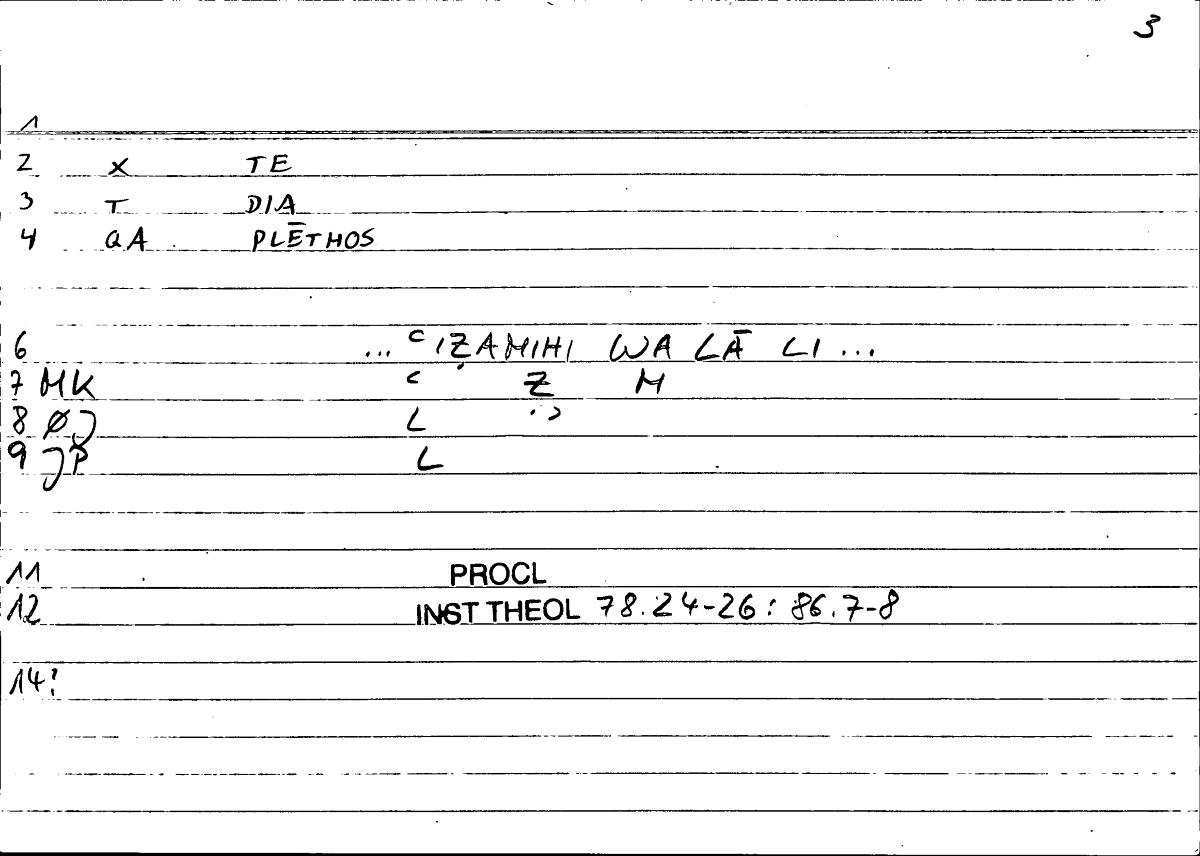 3
1
2 X TE
3 T DIA
4 QA PLĒTHOS
6 ... ʿIẒAMIHI WALĀ LI ...
7 MK ʿ Ẓ M
8 ØJ L
9 JP L
11 PROCL
12 INST THEOL 78.24-26: 86.7-8
14: